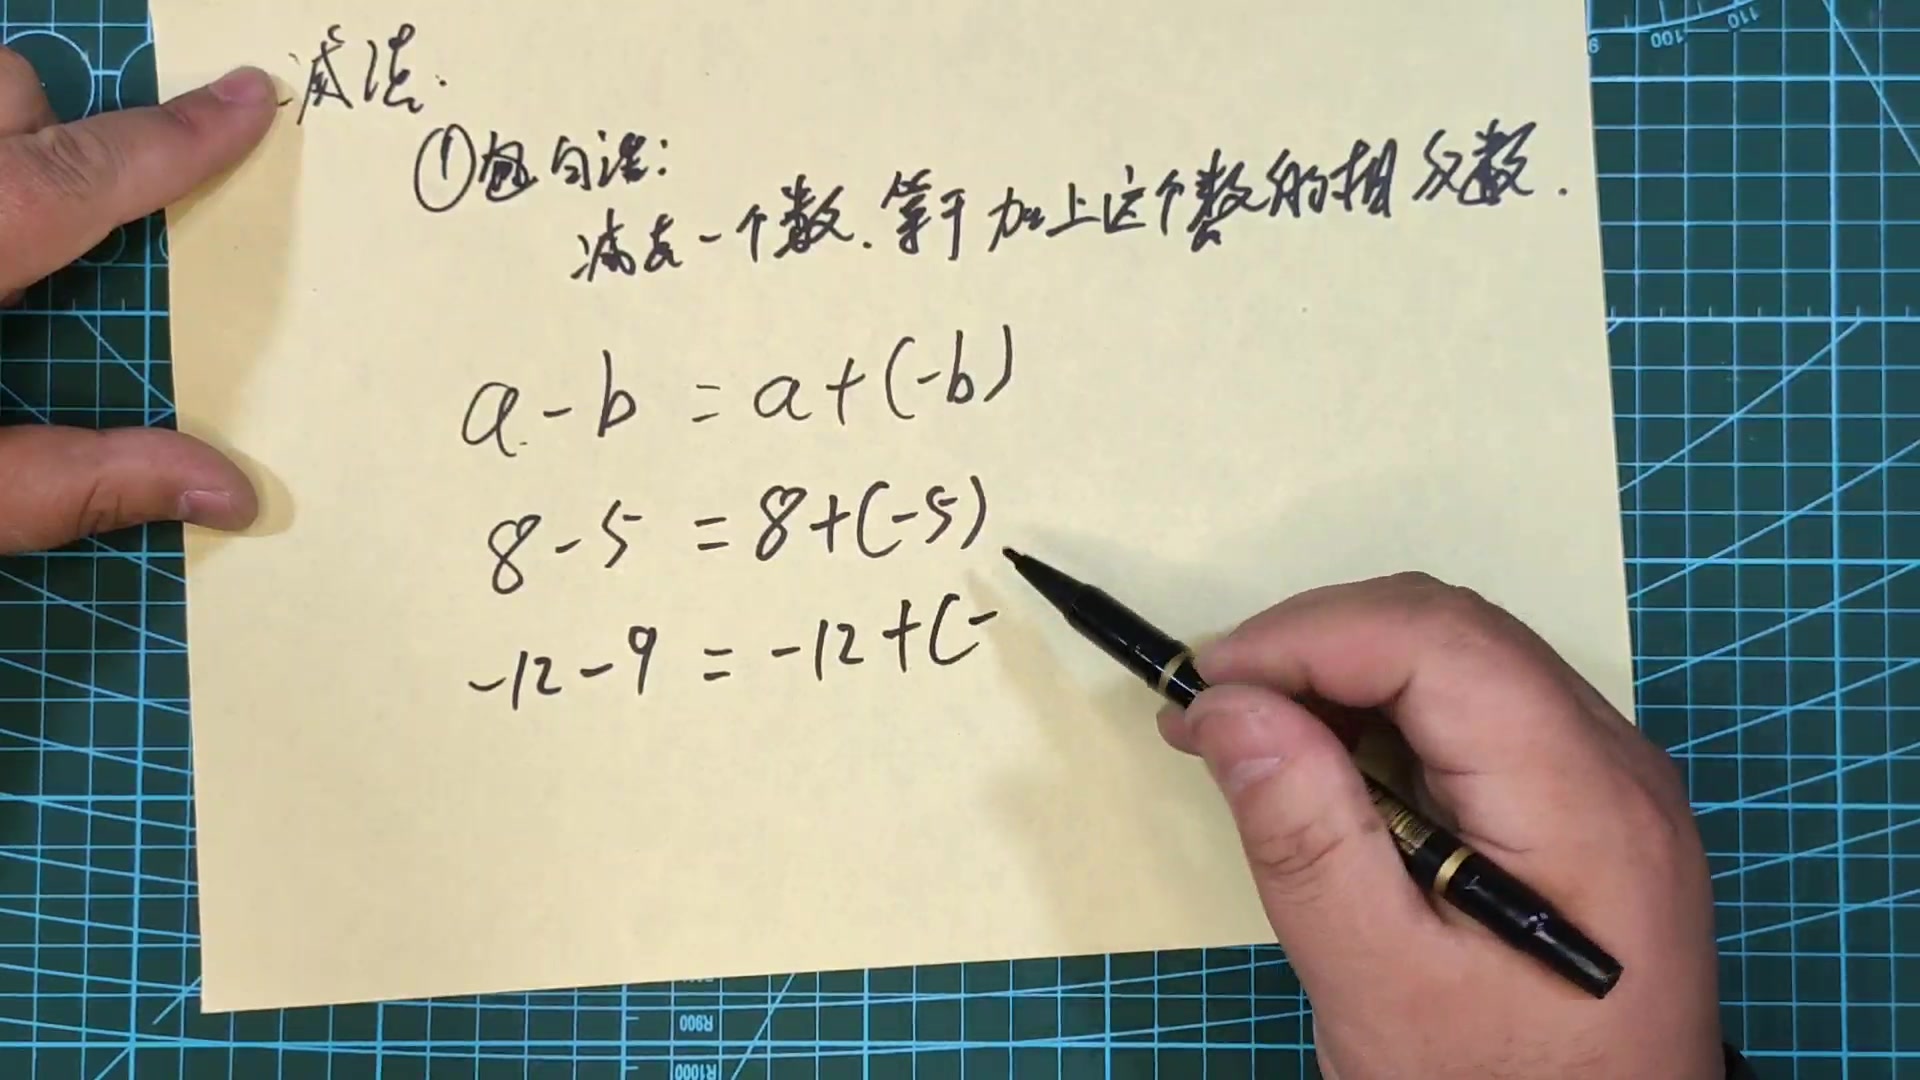 减法.
①包句话:
减去一个数.等于加上这个数的相反数.
a-b = a+(-b)
8-5 = 8+(-5)
-12-9 = -12+(-
100 110
R900
R1000